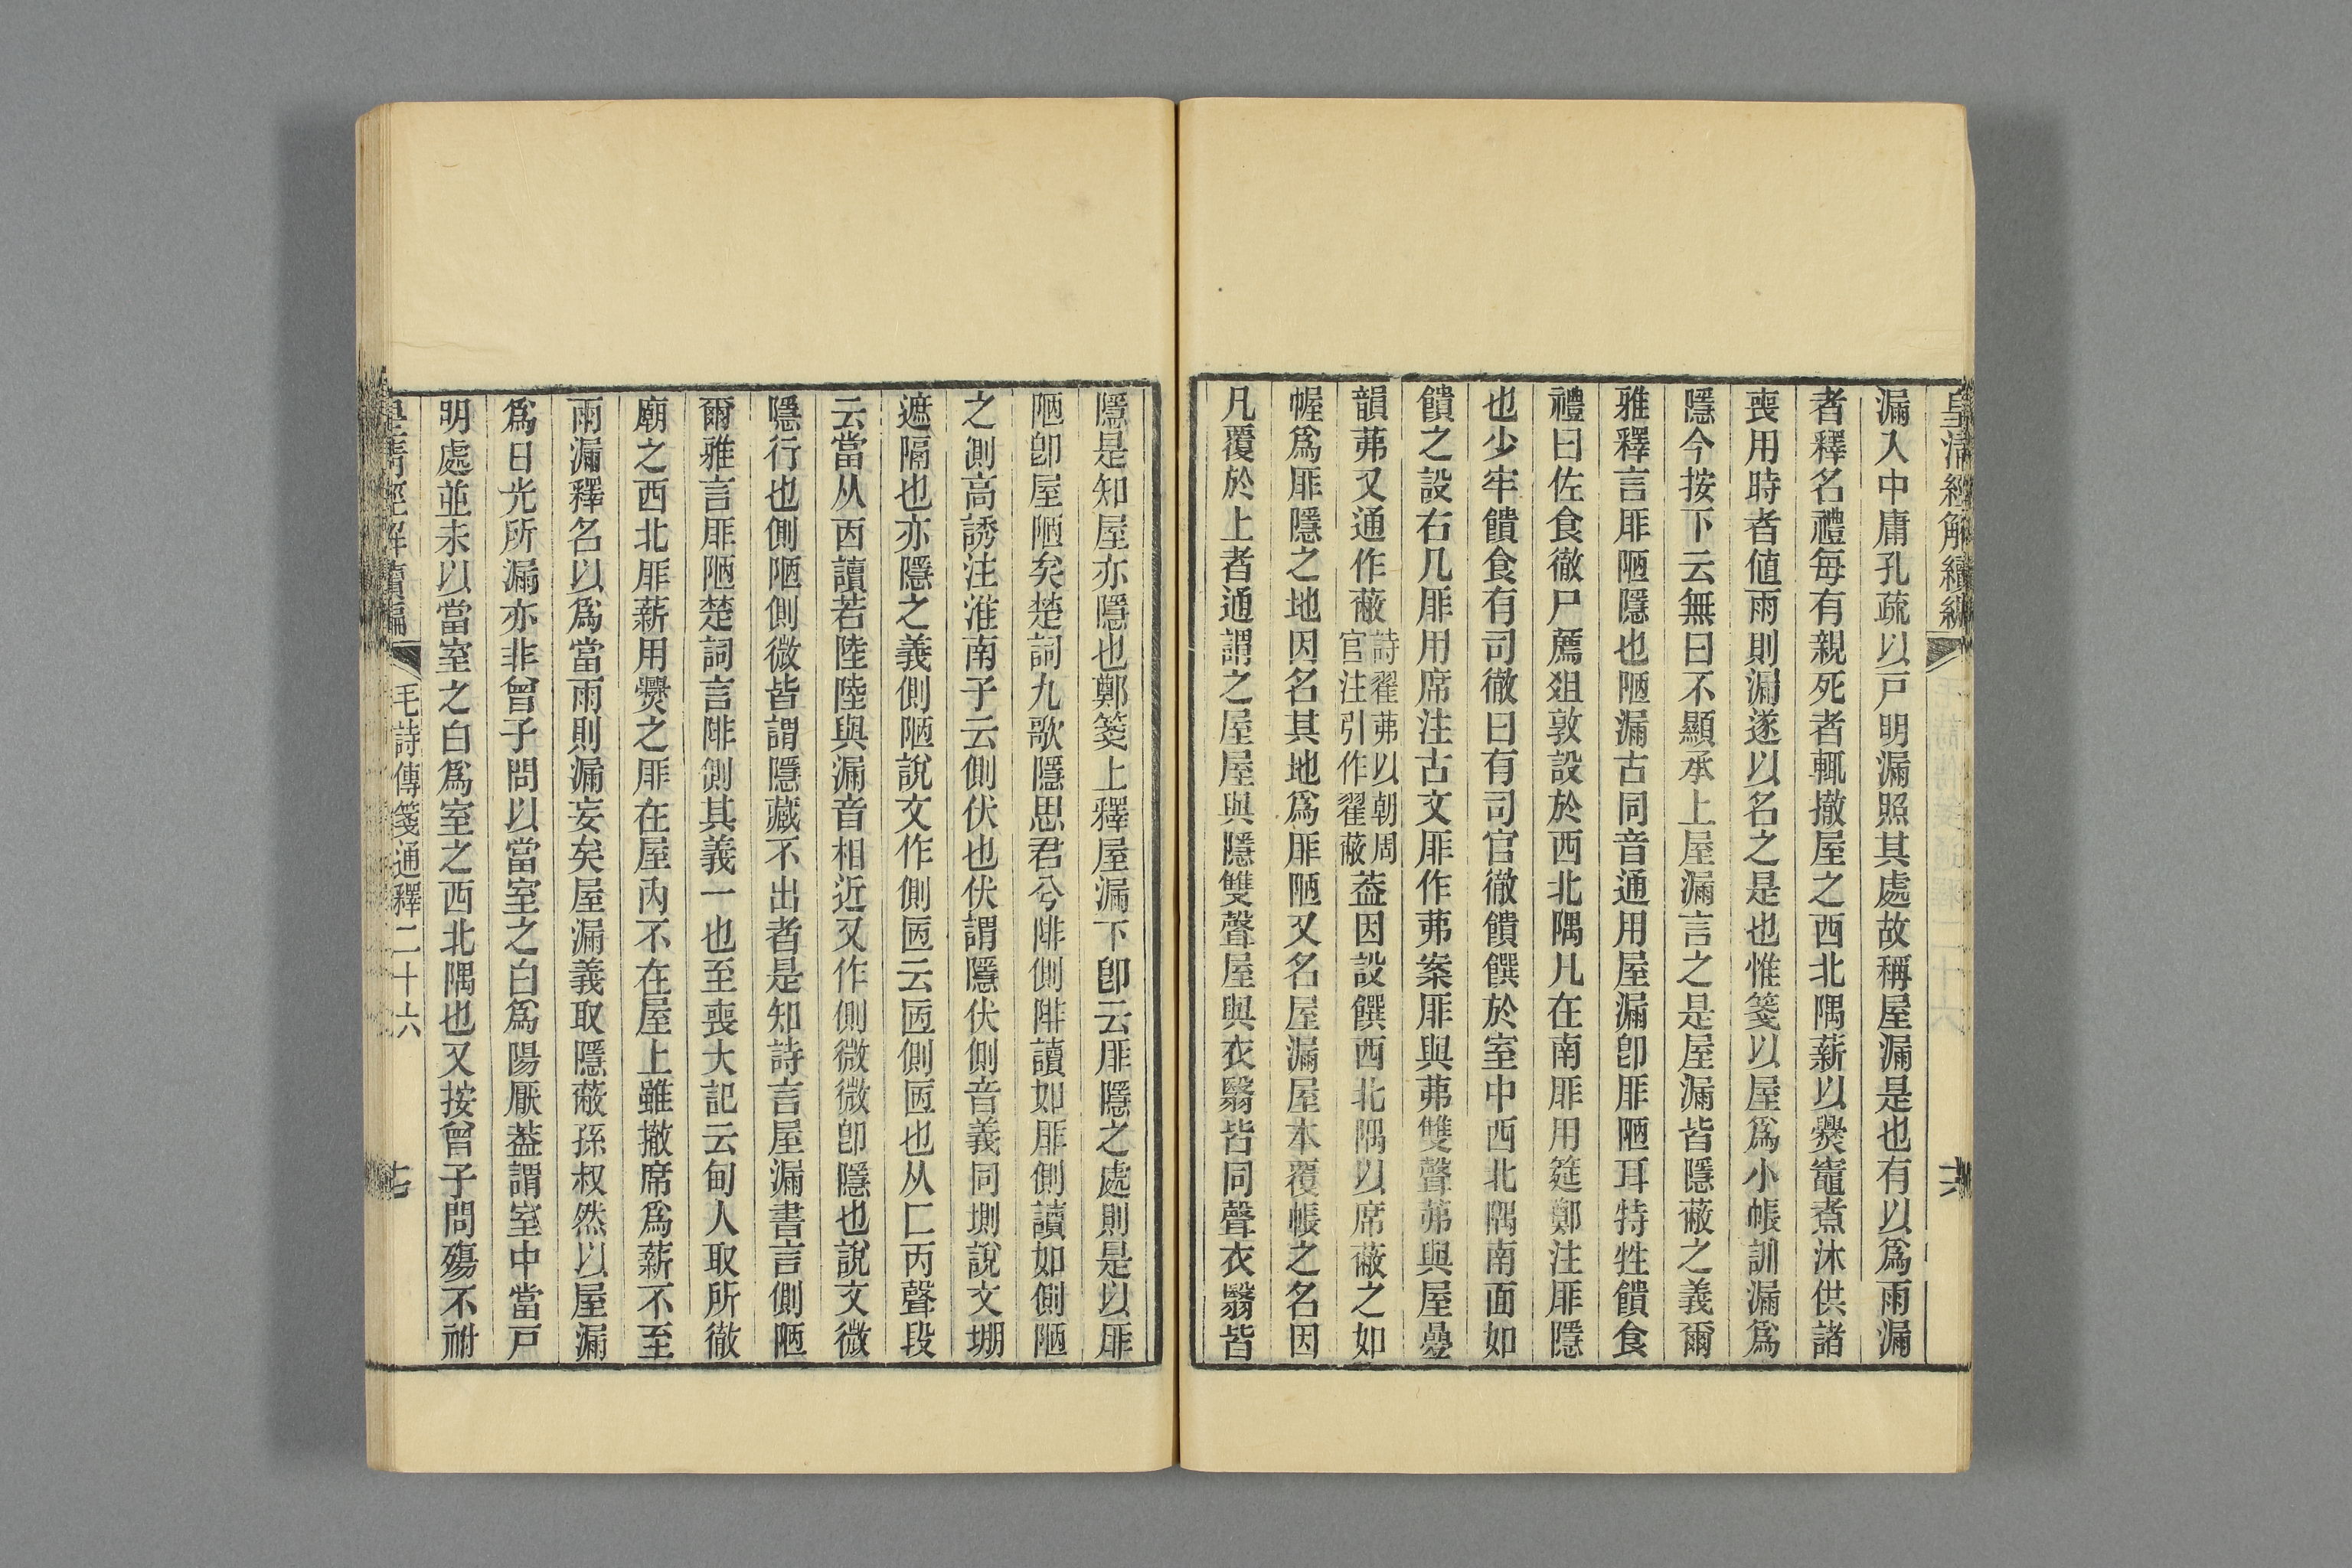 皇清經解續編
漏入中庸孔疏以戸明漏照其處故稱屋漏是也有以爲雨漏
者釋名禮每有親死者輒撤屋之西北隅薪以爨竈煮沐供諸
喪用時者值雨則漏遂以名之是也惟箋以屋爲小帳訓漏爲
隱今按下云無曰不顯承上屋漏言之是屋漏皆隱蔽之義爾
雅釋言厞陋隱也陋漏古同音通用屋漏卽厞陋耳特牲饋食
禮曰佐食徹尸薦俎敦設於西北隅几在南厞用筵鄭注厞隱
也少牢饋食有司徹曰有司官徹饋饌於室中西北隅南面如
饋之設右几厞用席注古文厞作茀案厞與茀雙聲茀與屋疊
韻茀又通作蔽詩翟茀以朝周官注引作翟蔽葢因設饌西北隅以席蔽之如
幄爲厞隱之地因名其地爲厞陋又名屋漏屋本覆帳之名因
凡覆於上者通謂之屋屋與隱雙聲屋與衣翳皆同聲衣翳皆
隱是知屋亦隱也鄭箋上釋屋漏下卽云厞隱之處則是以厞
陋卽屋陋矣楚詞九歌隱思君兮陫側陫讀如厞側讀如側陋
之側高誘注淮南子云側伏也伏謂隱伏側音義同堋說文堋
遮隔也亦隱之義側陋說文作側㔷云㔷側㔷也从匚丙聲段
云當从㐁讀若陸陸與漏音相近又作側微微卽隱也說文微
隱行也側陋側微皆謂隱藏不出者是知詩言屋漏書言側陋
爾雅言厞陋楚詞言陫側其義一也至喪大記云甸人取所徹
廟之西北厞薪用爨之厞在屋內不在屋上雖撤席爲薪不至
雨漏釋名以爲當雨則漏妄矣屋漏義取隱蔽孫叔然以屋漏
爲日光所漏亦非曾子問以當室之白爲陽厭葢謂室中當戸
明處並未以當室之白爲室之西北隅也又按曾子問殤不祔
皇清經解續編 毛詩傳箋通釋二十六 十七